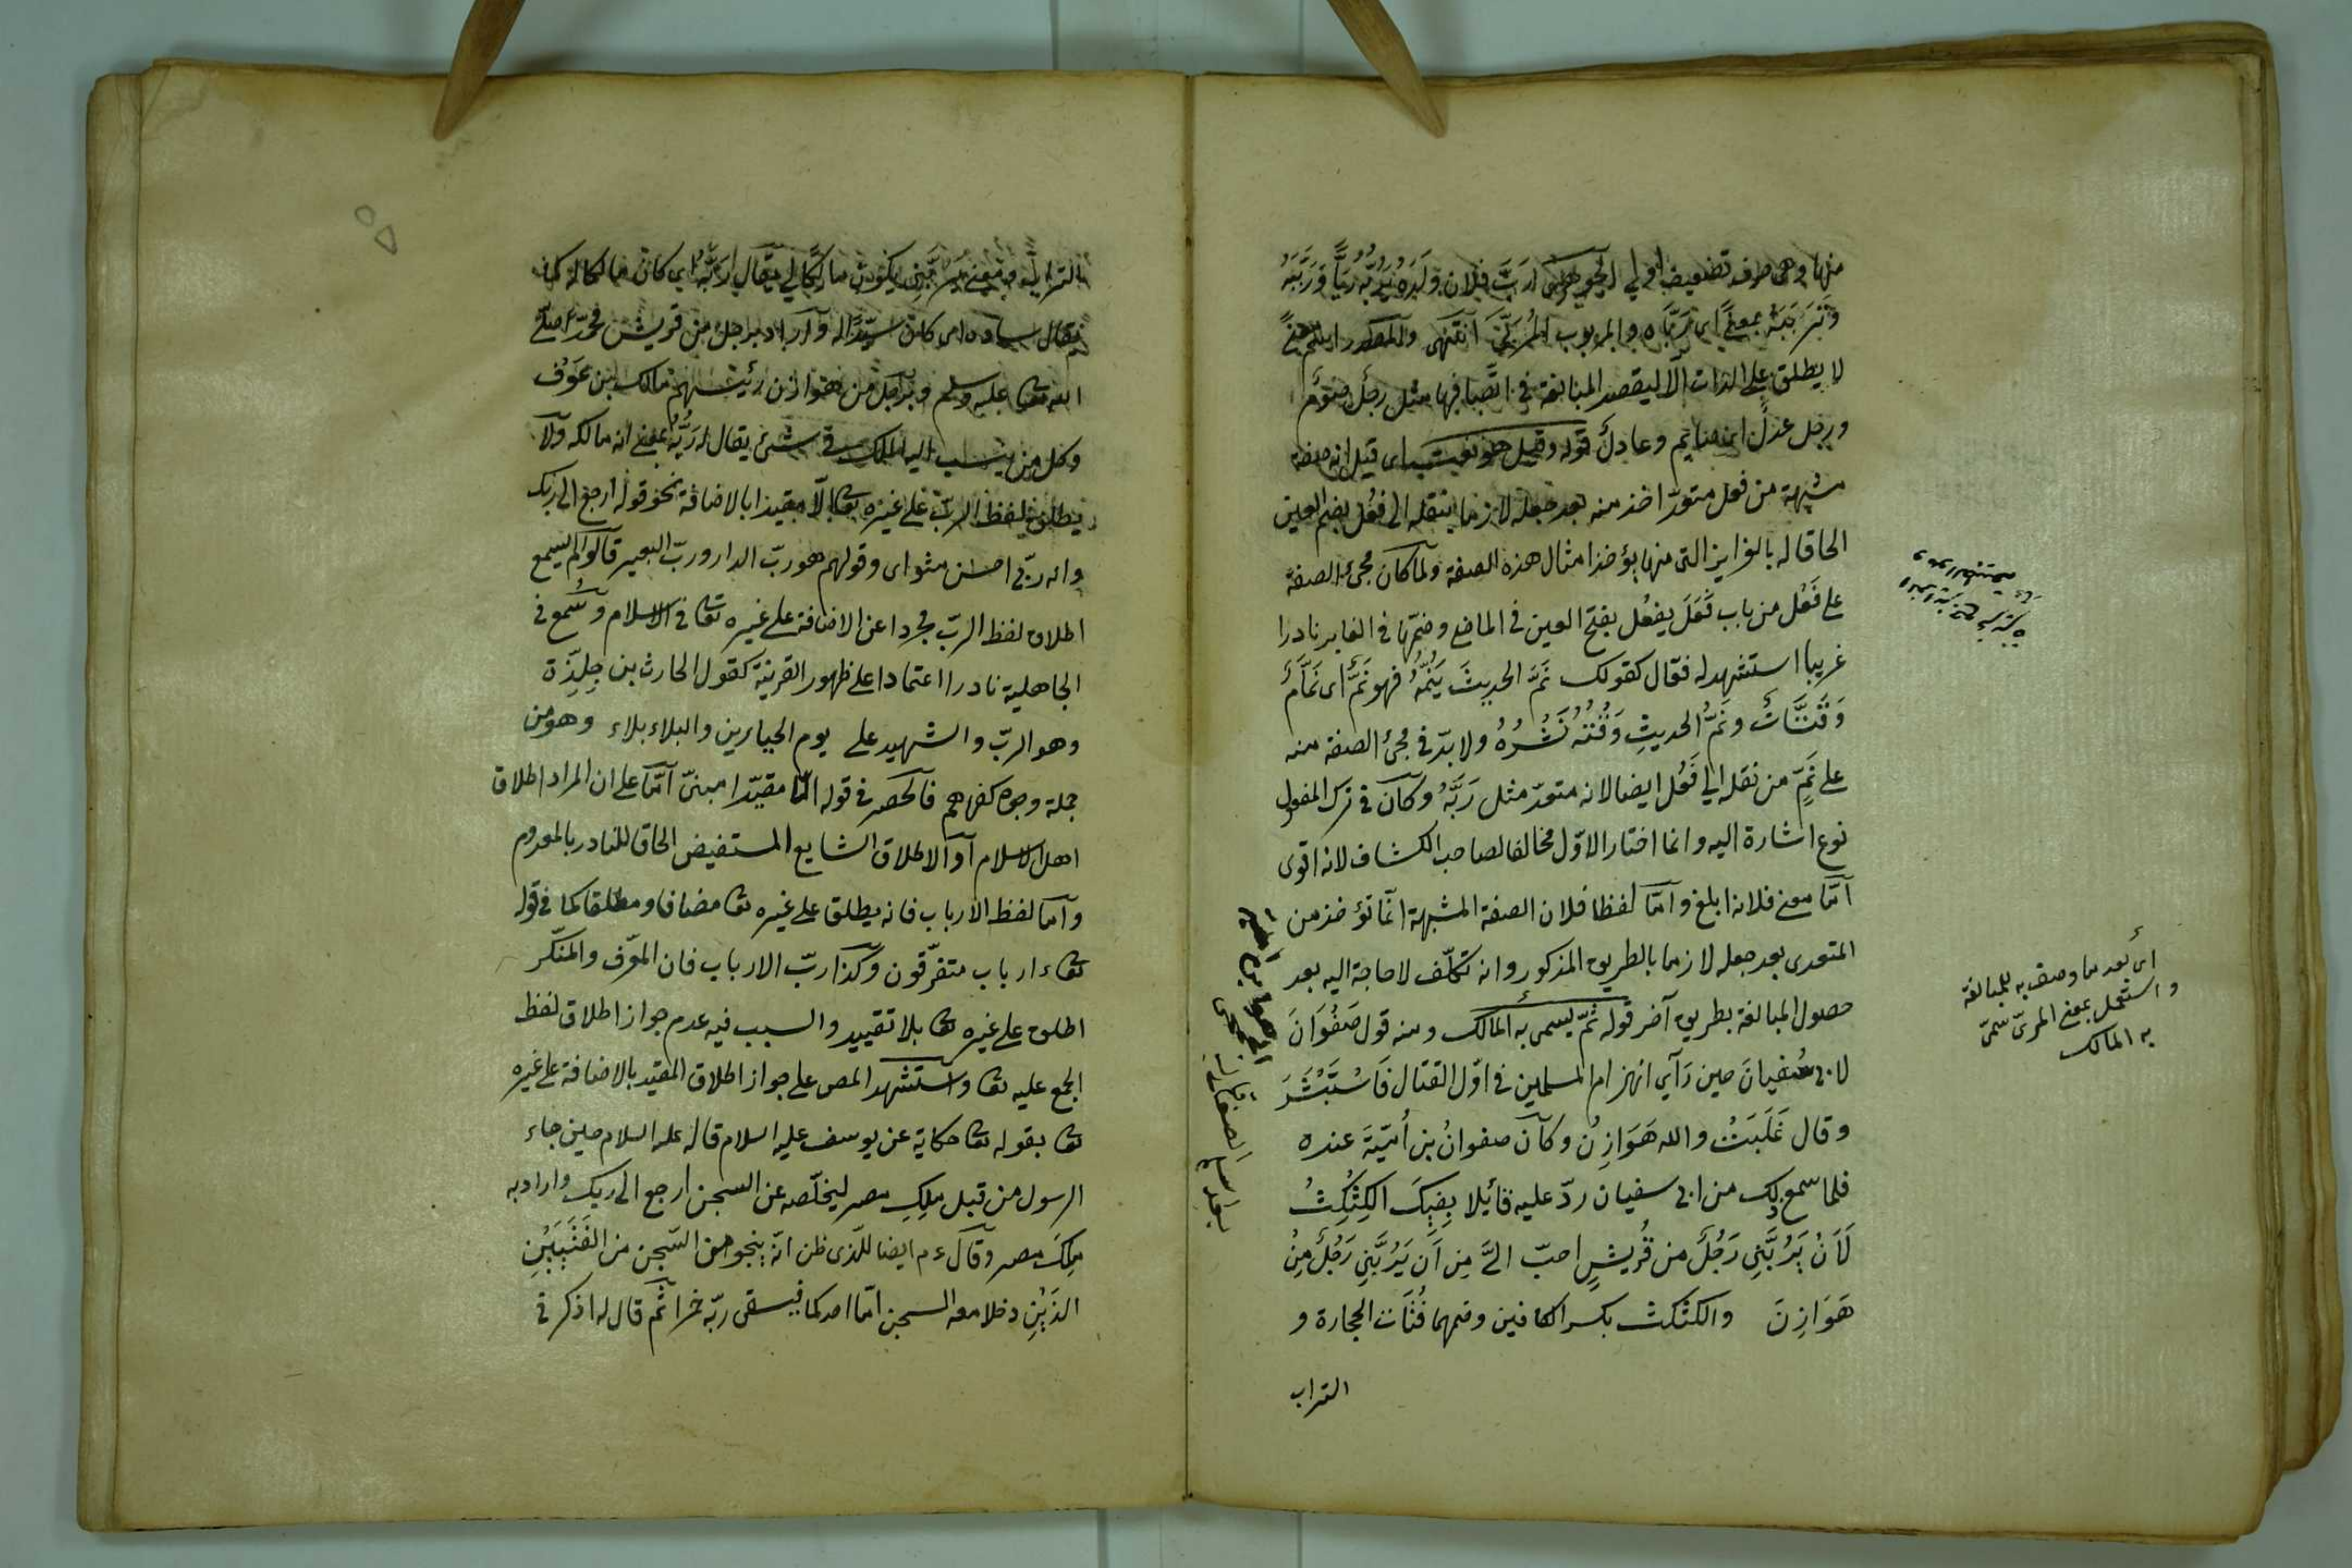 منها وهى حرف تضعيف اولى الجوهرى رَبَّ فلان وَلَدَهُ يَرُبُّهُ رَبًّا وَرَبَّبَهُ
وَتَرَبَّبَهُ بمعنًى اى رَبَّاه والمربوب المُربَّى انتهى والمصدر
لا يطلق على الذات الا ليقصد المبالغة فى اتصافها مثل رجل صَوْمٌ
ورجل عدلٌ اى صايم وعادلٌ قوله وقيل هو نعت اى قيل انه صفة
مشبهة من فعل متعدّ اخذ منه بعد جعله لازما بنقله الى فعُل بضم العين
الحاقا له بالغرايز التى منها يؤخذ امثال هذه الصفة ولما كان مجئ الصفة
على فَعْل من باب فَعَلَ يفعُل بفتح العين فى الماضى وضمّها فى الغابر نادرا
غريبا استشهد له فقال كقولك نَمَّ الحديثَ يَنُمُّهُ فهو نَمٌّ اى نَمَّامٌ
وَقَتَّاتٌ ونَمُّ الحديثِ وَقَتُّهُ نَشْرُهُ ولا بدّ فى مجئ الصفة منه
على نَمٍّ من نقله الى فَعُل ايضا لانه متعدّ مثل رَبَّهُ وكان فى ترك المفعول
نوع اشارة اليه وانما اختار الاوّل مخالفا لصاحب الكشاف لانه اقوى
امّا معنى فلانه ابلغ وامّا لفظا فلان الصفة المشبهة انما تؤخذ من
المتعدى بعد جعله لازما بالطريق المذكور وانه تكلّف لا حاجة اليه بعد
حصول المبالغة بطريق آخر قوله ثمّ يسمى به المالك ومنه قول صَفْوَانَ
لابى سُفيانَ حين رَآى انهزام المسلمين فى اوّل القتال فَاسْتَبْشَرَ
وقال غَلَبَتْ والله هَوَازِنُ وكان صفوانُ بن أُمَيَّةَ عنده
فلما سمع ذلك من ابى سفيان ردّ عليه قائلا بِفِيكَ الكِثْكِثُ
لَاَنْ يَرُبَّنِى رَجُلٌ من قُريشٍ احبّ الىَّ مِن اَن يَرُبَّنِى رَجُلٌ مِنْ
هَوَازِنَ والكثكث بكسر الكافين وضمهما فُتَات الحجارة و
التراب
اى بعد ما وصف به للمبالغة
واستعمل بمعنى المربّى سُمّى
به المالك
بالتراب ومعنى يَرُبَّنِى يكون مالكًا لى يقال رَبَّهُ اى كان مالكا له كما
يقال ساده اى كان سيّدًا له واراد برجل من قريش محمّدا صلى
الله تعالى عليه وسلم وبرجل من هوازن رئيسهم مالك بن عَوْف
وكل من ينسب اليه الملك فى شئ يقال له رَبُّهُ بمعنى انه مالكه ولا
يطلق لفظ الربّ على غيره تعالى الّا مقيدا بالاضافة نحو قوله ارجع الى ربّك
وانه ربّى احسن مثواى وقولهم هو ربّ الدار وربّ البعير قالوا لم يسمع
اطلاق لفظ الربّ مجردا عن الاضافة على غيره تعالى فى الاسلام وسُمع فى
الجاهلية نادرا اعتمادا على ظهور القرينة كقول الحارث بن حِلِزَة
وهو الربّ والشهيد على يوم الحيارين والبلاء بلاء وهو من
جملة وجوه كفرهم فالحصر فى قوله الّا مقيّدا مبنىّ امّا على ان المراد اطلاق
اهل الاسلام او الاطلاق الشايع المستفيض الحاقا للنادر بالمعدوم
وامّا لفظ الارباب فانه يطلق على غيره تعالى مضافا ومطلقا كما فى قوله
تعالى ءارباب متفرّقون وكذا ربّ الارباب فان المعرّف والمنكّر
اطلق على غيره تعالى بلا تقييد والسبب فيه عدم جواز اطلاق لفظ
الجمع عليه تعالى واستشهد المص على جواز اطلاق المقيّد بالاضافة على غيره
تعالى بقوله تعالى حكاية عن يوسف عليه السلام قاله عليه السلام حين جاء
الرسول من قبل مَلِكِ مصر ليخلّصه عن السجن ارجع الى ربك واراد به
مَلِكَ مصر وقال ءم ايضا للّذى ظن انّه ينجو من السّجن من الفَتَيَيْنِ
الذَيْنِ دخلا معه السجن امّا احدكما فيسقى ربّه خمرا ثمّ قال له اذكر فى